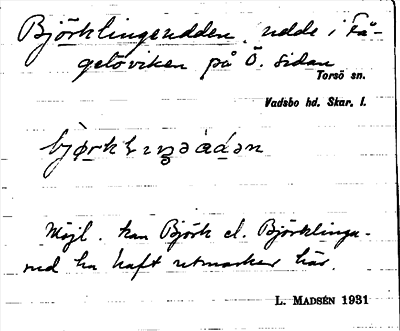 Björklingeudden, udde i Få-
gelöviken på Ö. sidan
Torsö sn.
Vadsbo hd. Skar. l.
Möjl. kan Björk el. Björklinge-
rud ha haft utmarker här.
L. MADSÉN 1931